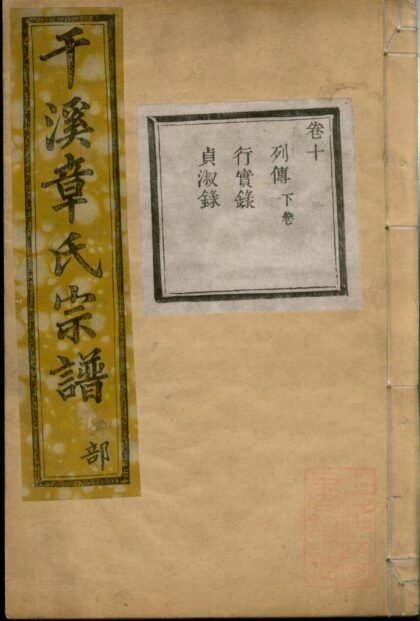 卷十
列傳 下卷
行實錄
貞淑錄
干溪章氏宗譜
部